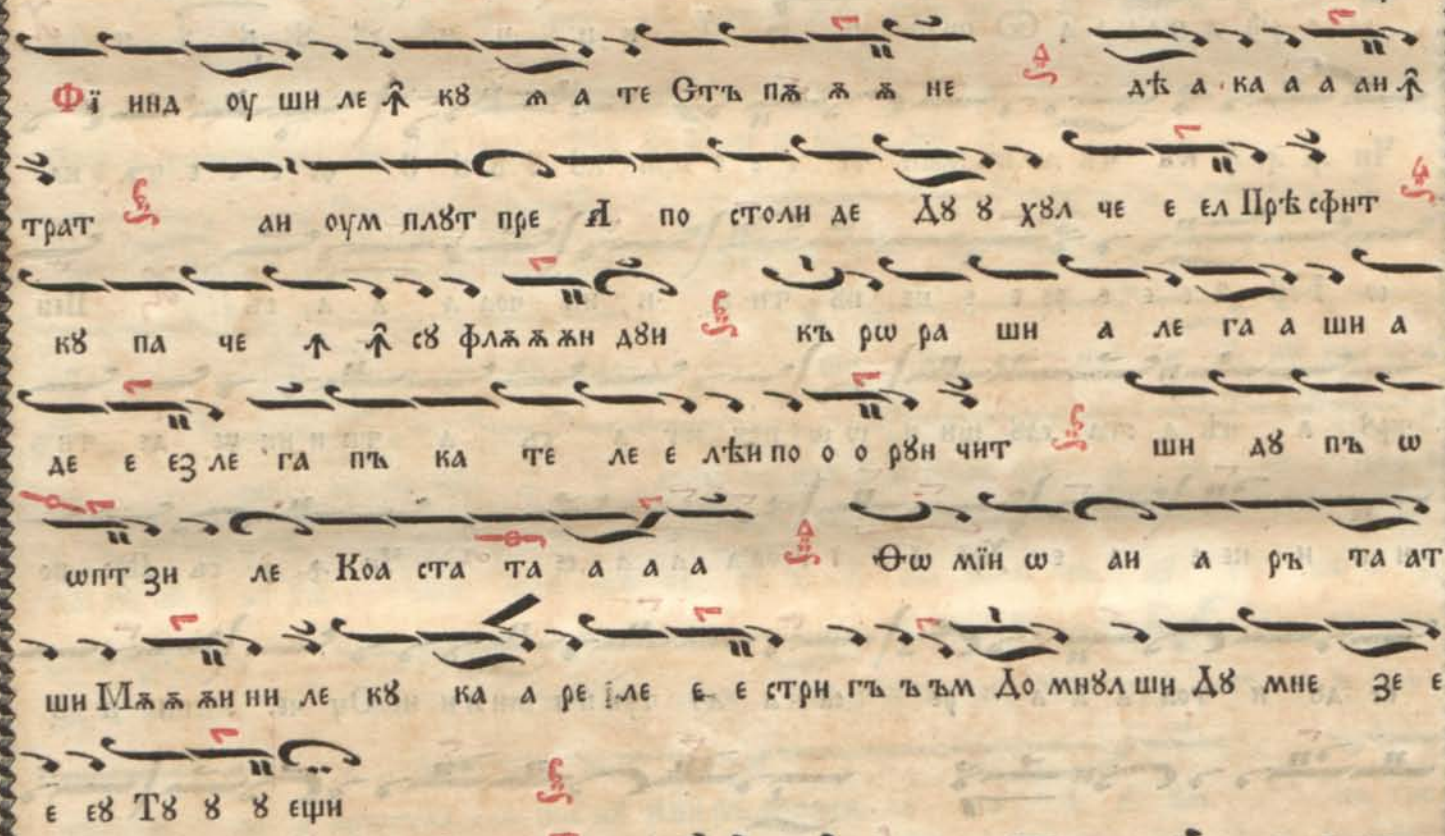 Фї инд оу ши ле ꙟ̑ кꙋ ѧ а те Стъ пѫ ѫ ѫ не дѣ а ка а а аи ꙟ̑
трат аи оум плꙋт пре А по столи де Дꙋ ꙋ хꙋл че е ел Прѣ сфит
кꙋ па че ꙟ ꙟ̑ сꙋ флѫ ѫ ѫи дꙋи къ рѡ ра ши а ле га а ши а
де е ез ле га пъ ка те ле е лѣи по о о рꙋи чит ши дꙋ пъ ѡ
ѡпт зи ле Коа ста та а а а Ѳѡ мїи ѡ аи а ръ та ат
ши Мѫ ѫ ѫи ни ле кꙋ ка а ре і ле е е стри гъ ъ ъм До мнꙋл ши Дꙋ мне зе е
е еꙋ Тꙋ ꙋ ꙋ ещи